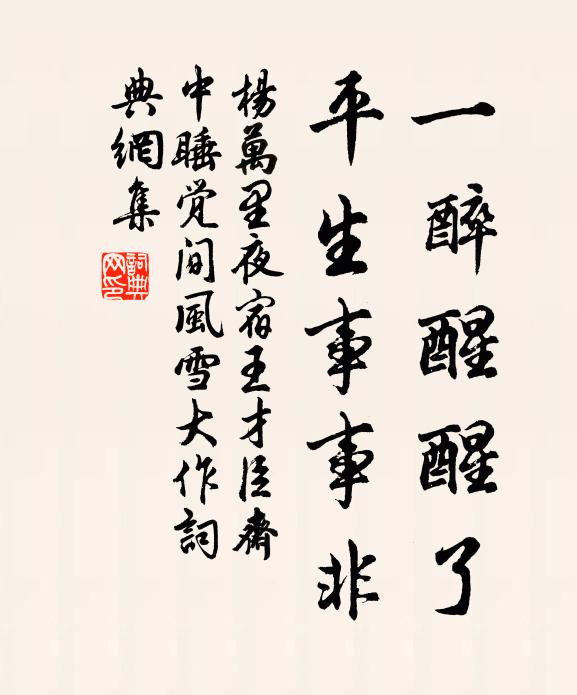 一醉醒醒了
平生事事非
楊萬里夜宿王才臣齋
中睡觉間風雪大作詞
典網集
詞典
网印